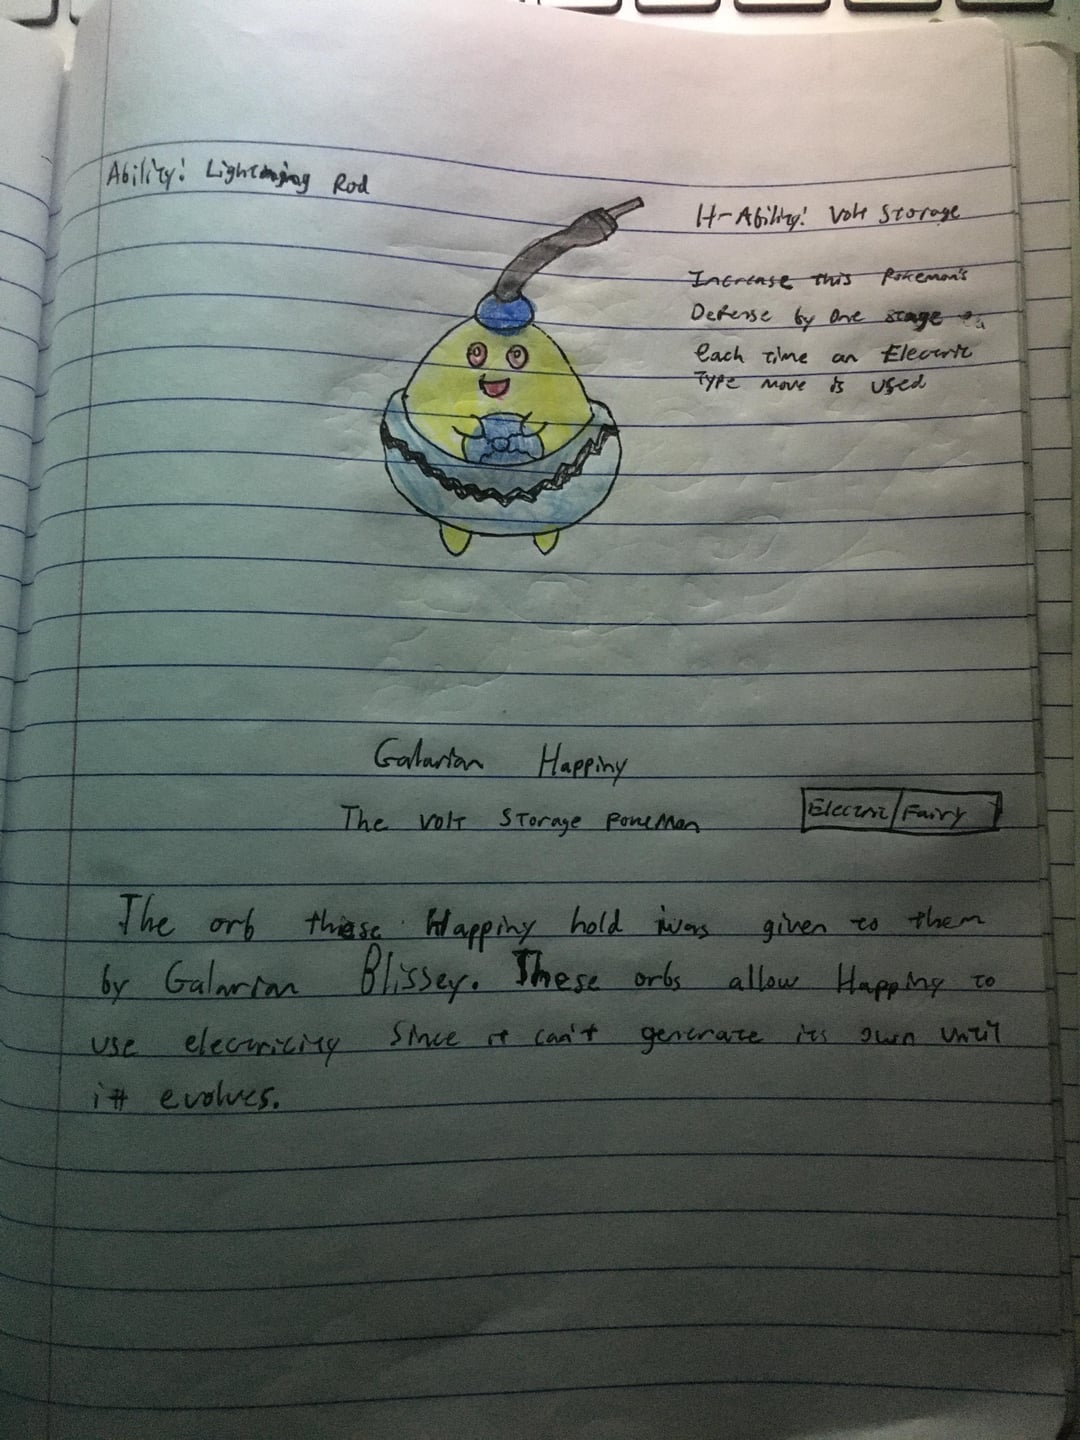 Ability: Lightning Rod
H-Ability: Volt Storage
Increase this Pokemon's
Defense by one stage
each time an Electric
Type move is used
Galarian Happiny
The Volt Storage Pokemon
Electric/Fairy
The orb these Happiny hold was given to them
by Galarian Blissey. These orbs allow Happiny to
use electricity since it can't generate its own until
it evolves.